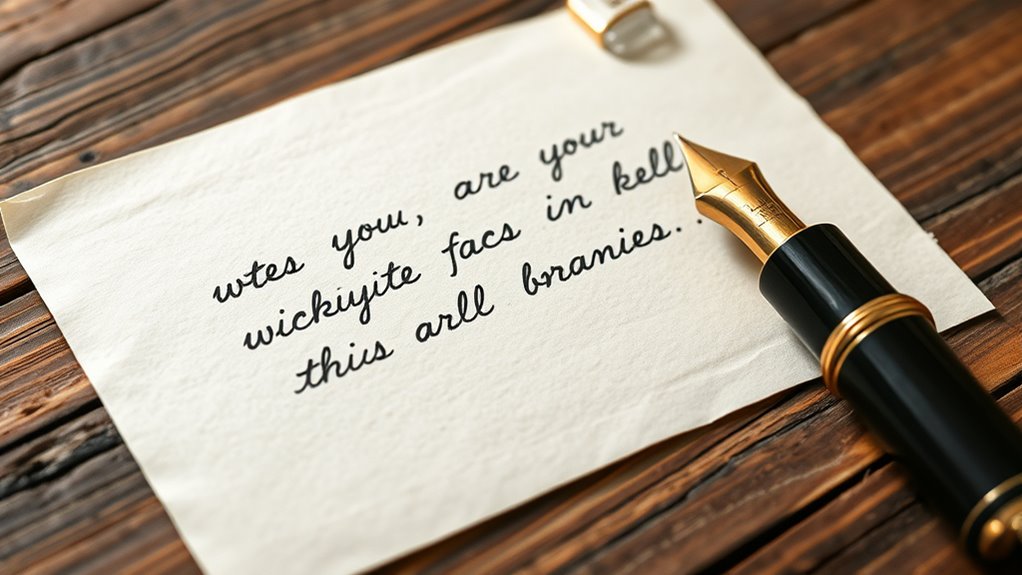 wtes youu, are your
wickiyite facs in kell
thius arll branies..